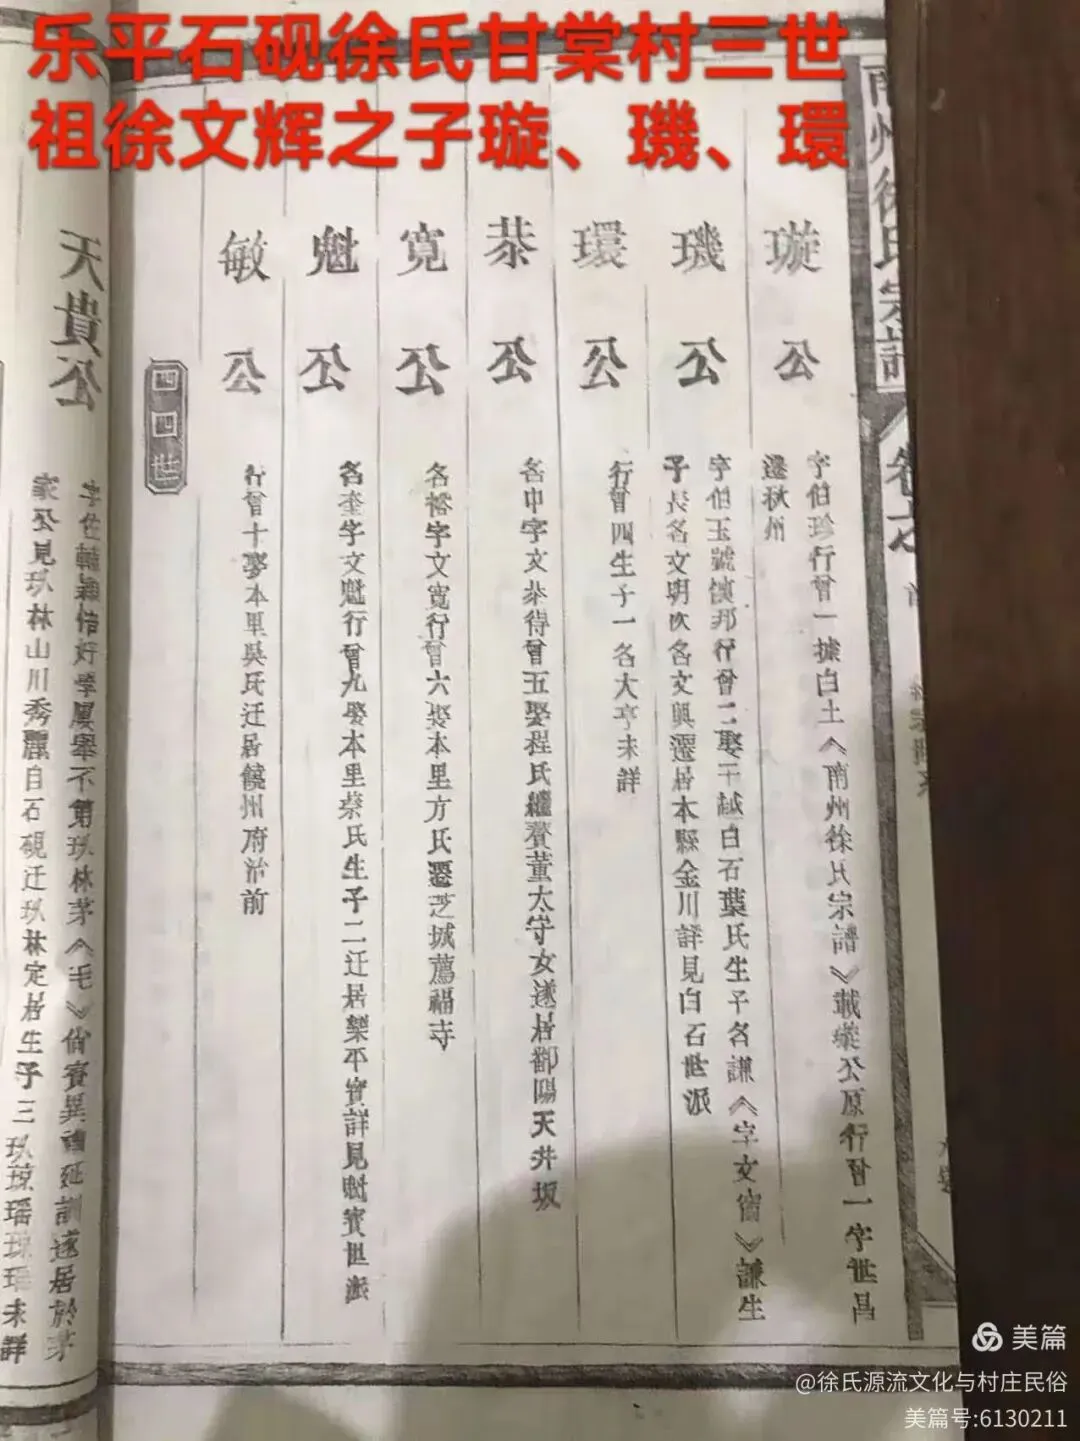 乐平石砚徐氏甘棠村三世
祖徐文辉之子璇、璣、環
南州徐氏宗譜
卷之
璇公
字伯珍行曾一據白土《南州徐氏宗譜》載璇公原行曾一字世昌
遷秋州
璣公
字伯玉號慎邦行曾二娶干越白石葉氏生子名謙《字文富》謙生
子長名文明次名文興遷居本縣金川詳見白石世派
環公
行曾四生子一名大亨未詳
恭公
名申字文恭待曾五娶程氏繼贅董太守女遂居鄱陽天井坂
寬公
名裕字文寬行曾六娶本里方氏遷芝城薦福寺
魁公
名奎字文魁行曾九娶本里蔡氏生子二迁居樂平賓詳見魁賓世派
敏公
行曾十娶本里吳氏迁居饒州府治前
四四世
天貴公
字仕輔穎悟好學屢舉不第玖林茅《毛》儉賓異禮延訓遂居於茅
家公見玖林山川秀麗自石硯迁玖林定居生子三玖琼瑶琼瑶未詳
美篇
@徐氏源流文化与村庄民俗
美篇号:6130211